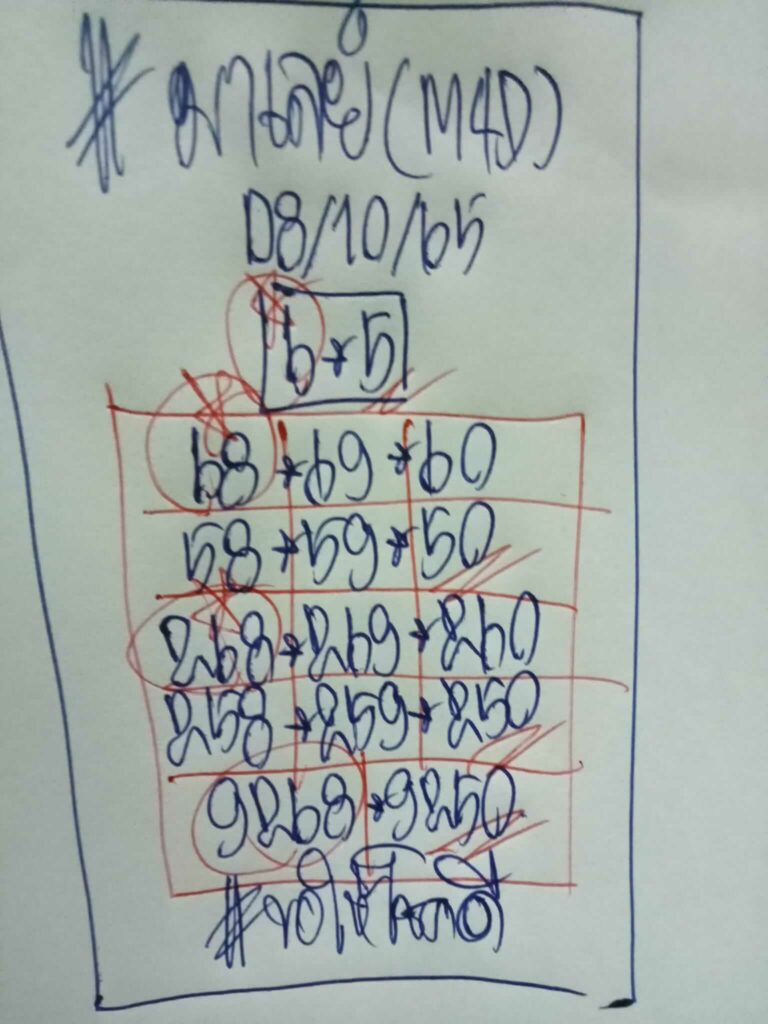 # มาเลย์ (M4D)
08/10/65
6*5
68*69*60
58*59*50
268*269*260
258*259*250
9268*9250
#ขอให้โชคดี